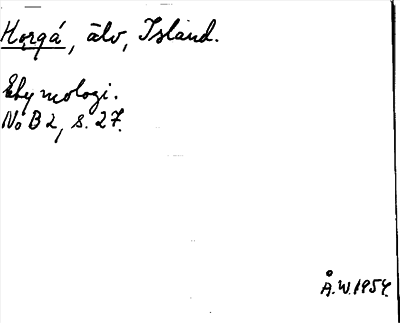 Horgá, älv, Island.
Etymologi.
NoB 2, s. 27.
Å.W. 1954.